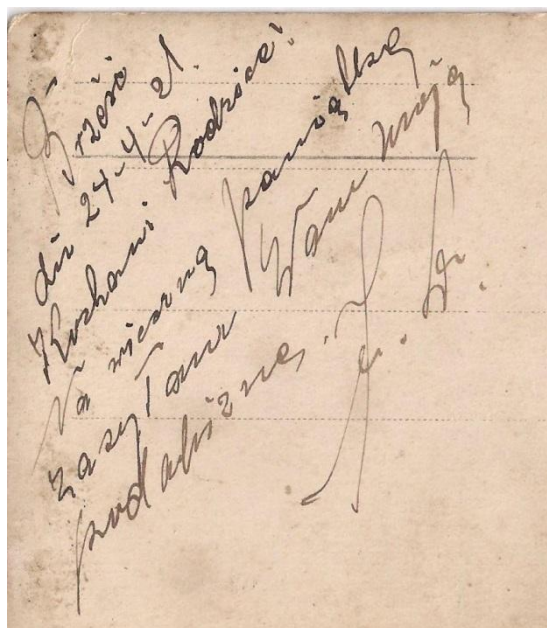 Brześć
dn 24-4-21.
Kochani Rodzice!
Na wieczną pamiątkę
zasyłam Wam moją
podobiznę.